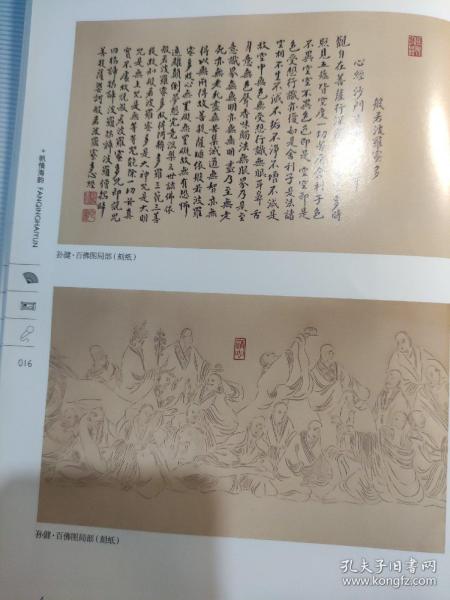 般若波羅蜜多
心經 沙門
觀自在菩薩行深 多時
照見五蘊皆空度一切苦厄舍利子色
不異空空不異色色即是空空即是
色受想行識亦復如是舍利子是法諸
空相不生不滅不垢不淨不增不減是
故空中無色無受想行識無眼耳鼻舌
身意無色聲香味觸法無眼界乃至無
意識界無無明亦無無明盡乃至無老
死亦無老死盡無苦集滅道無智亦無
得以無所得故菩提薩埵依般若波羅
蜜多故心無罣礙無罣礙故無有恐怖
遠離顛倒夢想究竟涅槃三世諸佛依
般若波羅蜜多故得阿耨多羅三藐三菩
提故知般若波羅蜜多是大神咒是大明
咒是無上咒是無等等咒能除一切苦真
實不虛故說般若波羅蜜多咒即說咒
曰揭諦揭諦波羅揭諦波羅僧揭諦
菩提薩婆訶般若波羅蜜多心經
孙健·百佛图局部(刻纸)
帆情海韵 FANQINGHAIYUN
016
孙健·百佛图局部(刻纸)
孔夫子旧书网
www.kongfz.com